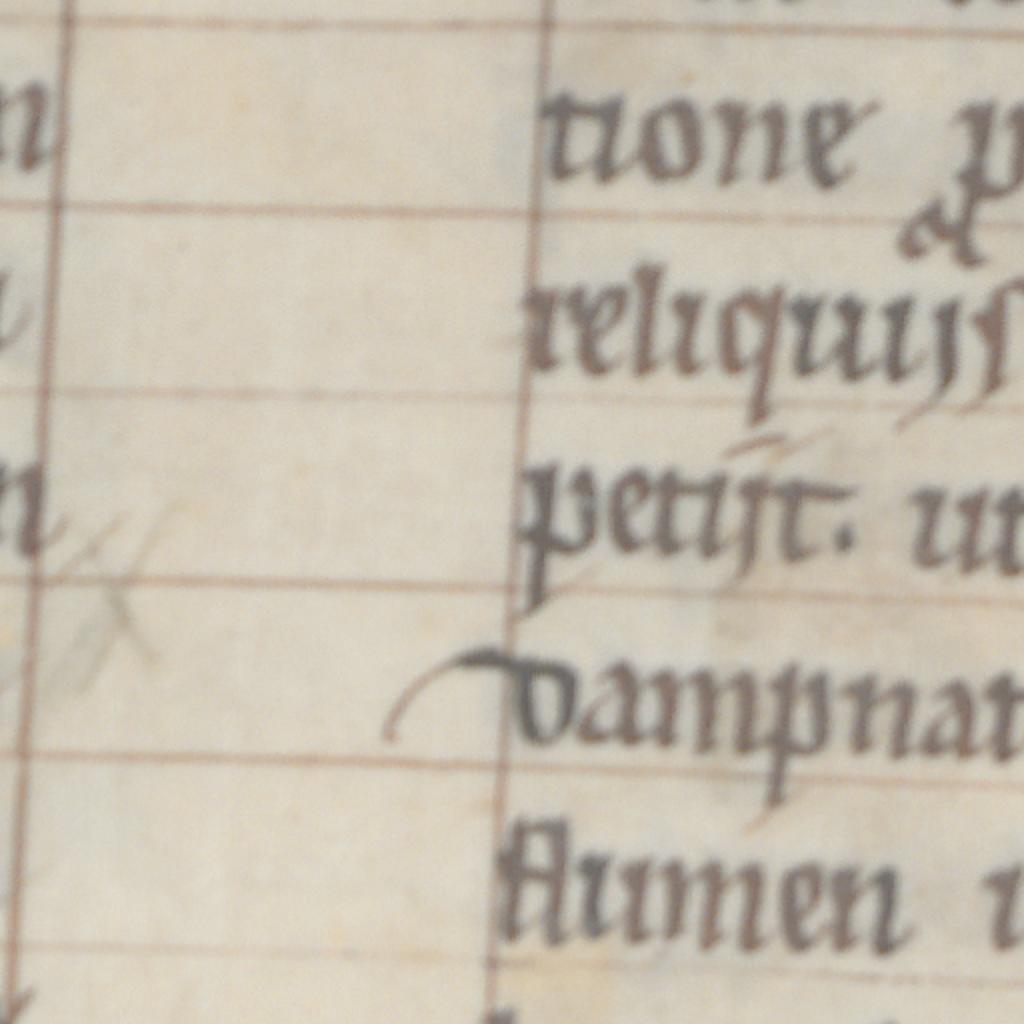 tione
reliquijs
petijt. ut
dampnat
flumen